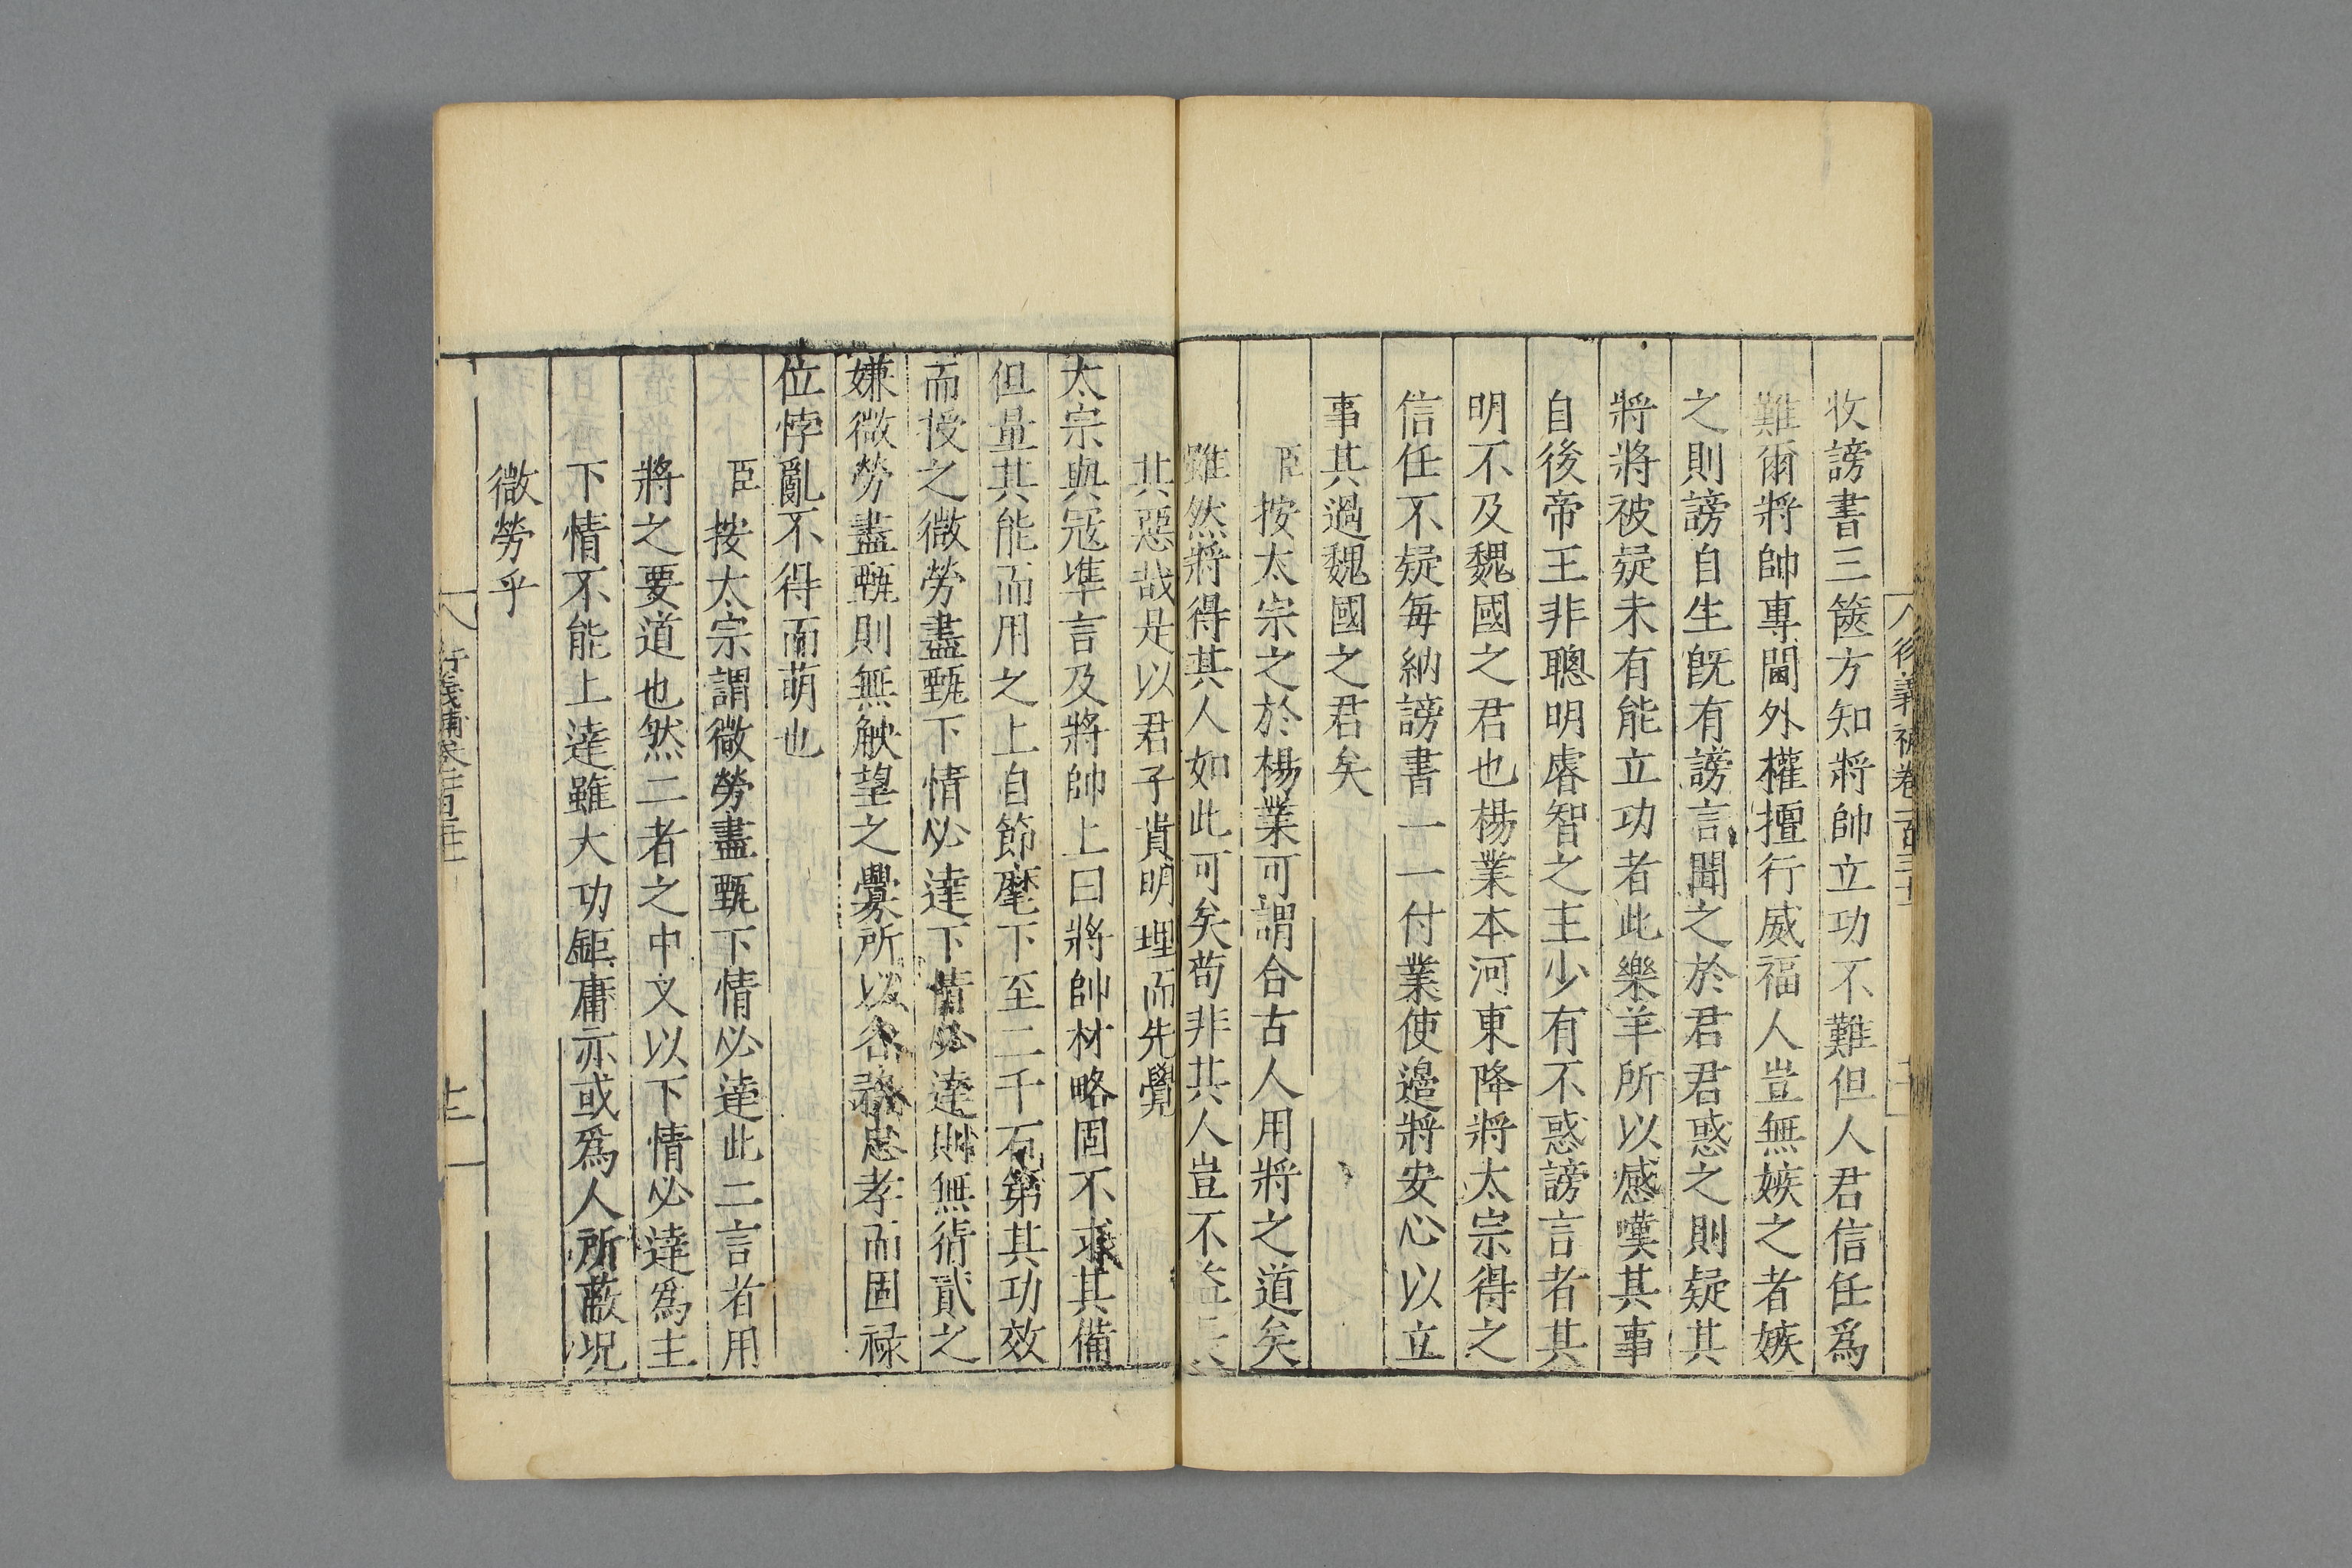 牧謗書三篋方知將帥立功不難但人君信任爲
難爾將帥專閫外權擅行威福人豈無嫉之者嫉
之則謗自生旣有謗言聞之於君君惑之則疑其
將將被疑未有能立功者此樂羊所以感嘆其事
自後帝王非聰明睿智之主少有不惑謗言者其
明不及魏國之君也楊業本河東降將太宗得之
信任不疑每納謗書一一付業使邉將安心以立
事其過魏國之君矣
臣按太宗之於楊業可謂合古人用將之道矣
雖然將得其人如此可矣苟非其人豈不益長
其惡哉是以君子貴明理而先覺
太宗與冦準言及將帥上曰將帥材略固不求其備
但量其能而用之上自節麾下至二千石第其功效
而授之微勞盡甄下情必達下情必達則無猜貳之
嫌微勞盡甄則無觖望之釁所以各務忠孝而固禄
位悖亂不得而萌也
臣按太宗謂微勞盡甄下情必達此二言者用
將之要道也然二者之中又以下情必達爲主
下情不能上達雖大功鉅庸亦或爲人所蔽况
微勞乎
衍義補卷一百三十
十二